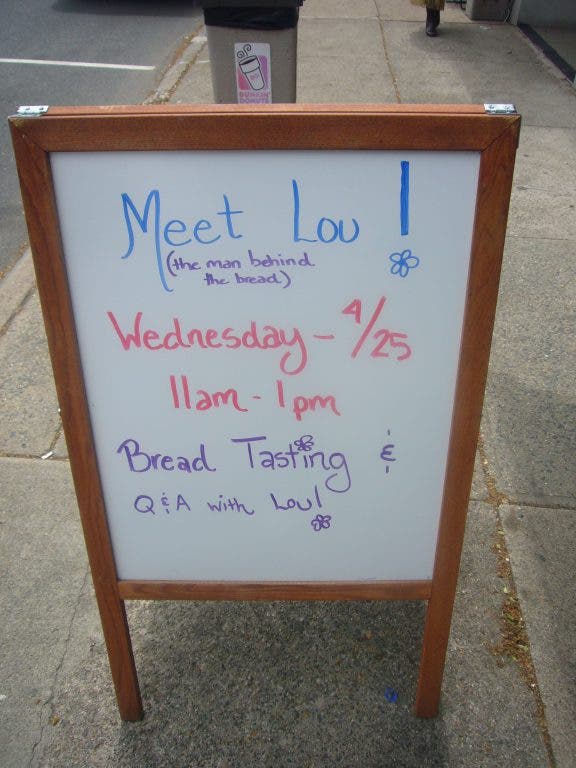 DUNKIN' DONUTS
Meet Lou!
(the man behind
the bread)
Wednesday - 4/25
11am - 1pm
Bread Tasting &
Q & A with Lou!